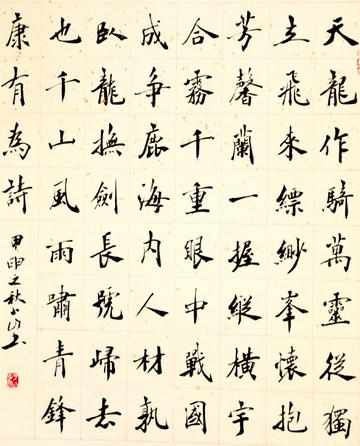 天龍作騎萬靈從獨
立飛來縹緲峯懷抱
芳馨蘭一握縱橫宇
合霧千重眼中戰國
成爭鹿海內人材孰
臥龍撫劍長號歸去
也千山風雨嘯青鋒
康有為詩
甲申之秋小山书